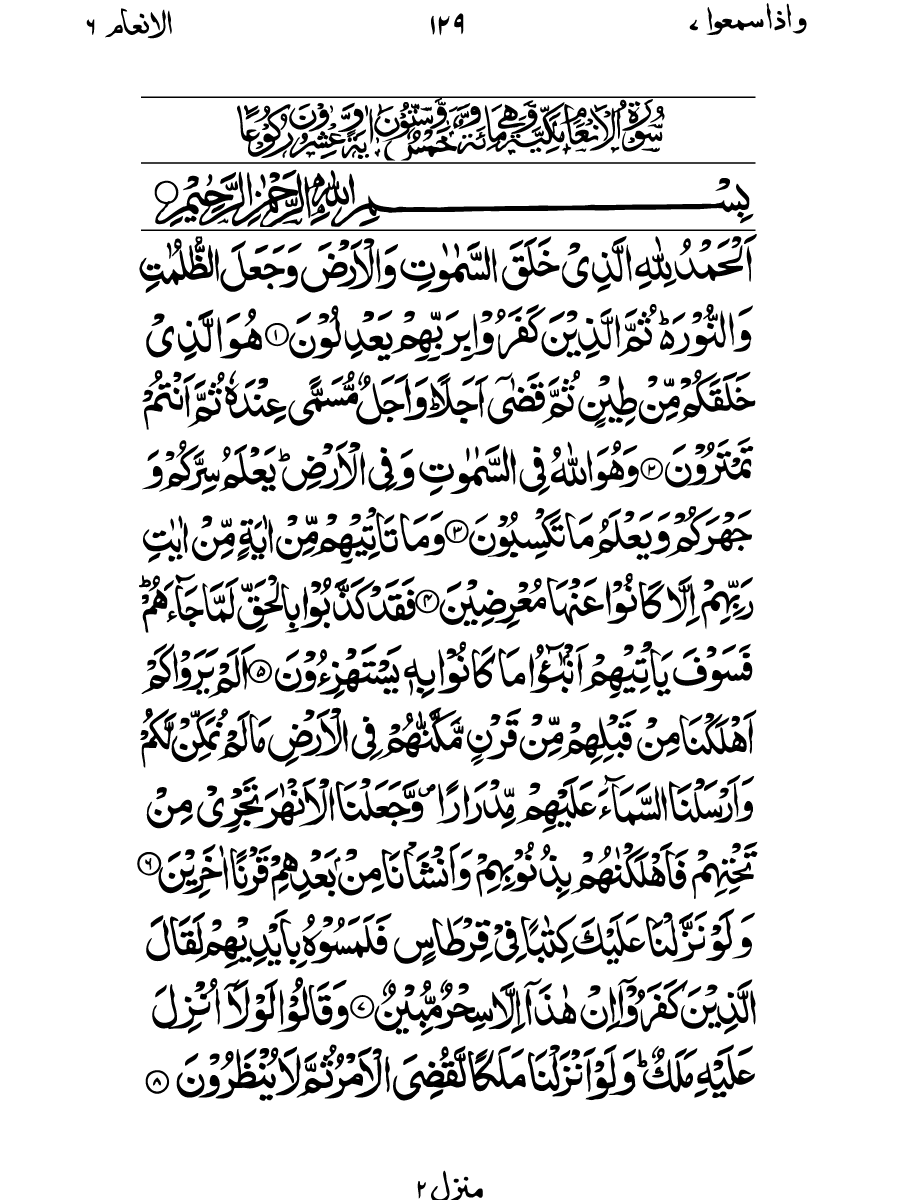 واذاسمعوا ٧
١٢٩
الانعام ٦
سُوْرَةُ الْاَنْعَامِ مَكِّيَّةٌ وَّهِيَ مِائَةٌ وَّخَمْسٌ وَّسِتُّوْنَ اٰيَةً وَّعِشْرُوْنَ رُكُوْعًا
بِسْمِ اللّٰهِ الرَّحْمٰنِ الرَّحِيْمِ
اَلْحَمْدُ لِلّٰهِ الَّذِىْ خَلَقَ السَّمٰوٰتِ وَالْاَرْضَ وَجَعَلَ الظُّلُمٰتِ
وَالنُّوْرَ ؕ ثُمَّ الَّذِيْنَ كَفَرُوْا بِرَبِّهِمْ يَعْدِلُوْنَ ۝١ هُوَ الَّذِىْ
خَلَقَكُمْ مِّنْ طِيْنٍ ثُمَّ قَضٰۤى اَجَلًا ؕ وَاَجَلٌ مُّسَمًّى عِنْدَهٗ ثُمَّ اَنْتُمْ
تَمْتَرُوْنَ ۝٢ وَهُوَ اللّٰهُ فِى السَّمٰوٰتِ وَفِى الْاَرْضِ ؕ يَعْلَمُ سِرَّكُمْ وَ
جَهْرَكُمْ وَيَعْلَمُ مَا تَكْسِبُوْنَ ۝٣ وَمَا تَاْتِيْهِمْ مِّنْ اٰيَةٍ مِّنْ اٰيٰتِ
رَبِّهِمْ اِلَّا كَانُوْا عَنْهَا مُعْرِضِيْنَ ۝٤ فَقَدْ كَذَّبُوْا بِالْحَقِّ لَمَّا جَآءَهُمْ ؕ
فَسَوْفَ يَاْتِيْهِمْ اَنْۢبٰٓؤُا مَا كَانُوْا بِهٖ يَسْتَهْزِءُوْنَ ۝٥ اَلَمْ يَرَوْا كَمْ
اَهْلَكْنَا مِنْ قَبْلِهِمْ مِّنْ قَرْنٍ مَّكَّنّٰهُمْ فِى الْاَرْضِ مَا لَمْ نُمَكِّنْ لَّكُمْ
وَاَرْسَلْنَا السَّمَآءَ عَلَيْهِمْ مِّدْرَارًا ۪ وَّجَعَلْنَا الْاَنْهٰرَ تَجْرِىْ مِنْ
تَحْتِهِمْ فَاَهْلَكْنٰهُمْ بِذُنُوْبِهِمْ وَاَنْشَاْنَا مِنْۢ بَعْدِهِمْ قَرْنًا اٰخَرِيْنَ ۝٦
وَلَوْ نَزَّلْنَا عَلَيْكَ كِتٰبًا فِىْ قِرْطَاسٍ فَلَمَسُوْهُ بِاَيْدِيْهِمْ لَقَالَ
الَّذِيْنَ كَفَرُوْۤا اِنْ هٰذَاۤ اِلَّا سِحْرٌ مُّبِيْنٌ ۝٧ وَقَالُوْا لَوْلَاۤ اُنْزِلَ
عَلَيْهِ مَلَكٌ ؕ وَلَوْ اَنْزَلْنَا مَلَكًا لَّقُضِىَ الْاَمْرُ ثُمَّ لَا يُنْظَرُوْنَ ۝٨
منزل ٢